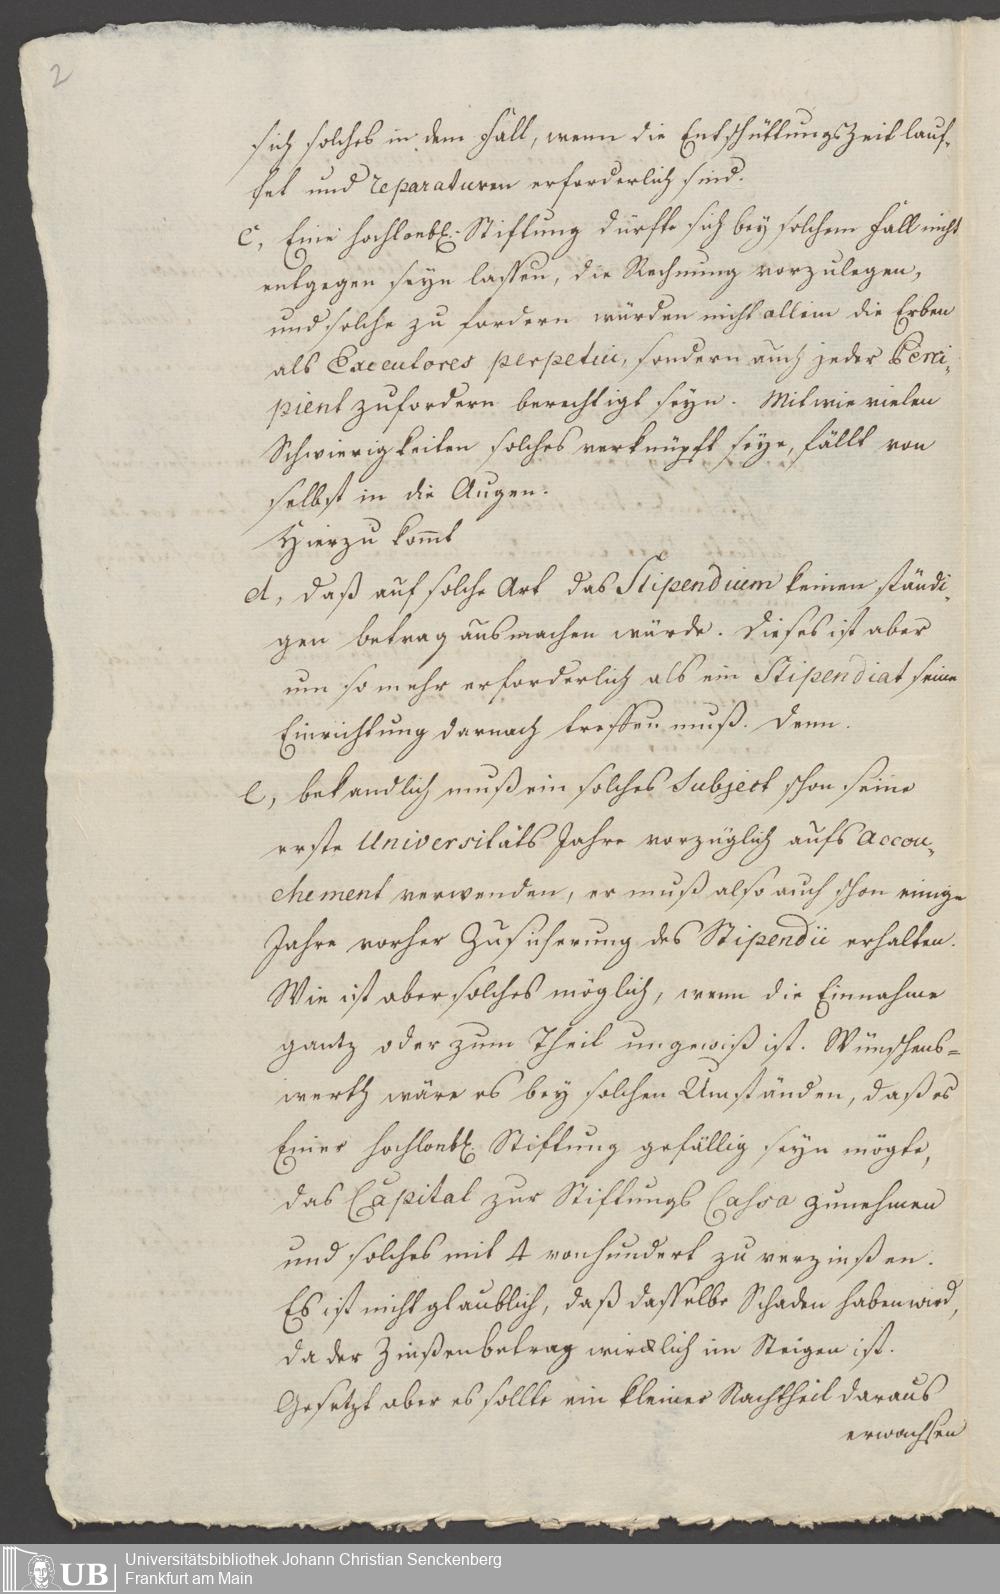 2
sich solches in dem Fall, wenn die Entschüttungs Zeit lauf-
fet und reparaturen erforderlich sind.
c, Eine hochlöebl. Stiftung dürfte sich bey solchem Fall nicht
entgegen seyn lassen, die Rechnung vorzulegen,
und solche zu fordern würden nicht allein die Erben
als Executores perpetui, sondern auch jeder Perci-
pient zufordern berechtigt seyn. Mit wie vielen
Schwierigkeiten solches verknüpft seye, fällt von
selbst in die Augen.
Hierzu kom̄t
d, daß auf solche Art das Stipendium keinen ständi-
gen betrag ausmachen würde. Dieses ist aber
um so mehr erforderlich als ein Stipendiat seine
Einrichtung darnach treffen muß. Denn.
e, bekandlich muß ein solches Subject schon seine
erste Universitäts Jahre vorzüglich aufs accou-
chement verwenden, er muß also auch schon einige
Jahre vorher Zusicherung des Stipendii erhalten.
Wie ist aber solches möglich, wenn die Einnahme
gantz oder zum Theil ungewiß ist. Wünschens-
werth wäre es bey solchen Umständen, daß es
Einer hochlöebl. Stiftung gefällig seyn mögte,
das Capital zur Stiftungs Cassa zunehmen
und solches mit 4 vonhundert zu verzinßen.
Es ist nicht glaublich, daß dasselbe Schaden haben wird,
da der Zinßenbetrag wircklich im Steigen ist.
Gesetzt aber es sollte ein kleiner Nachtheil daraus
erwachsen
UB
Universitätsbibliothek Johann Christian Senckenberg
Frankfurt am Main